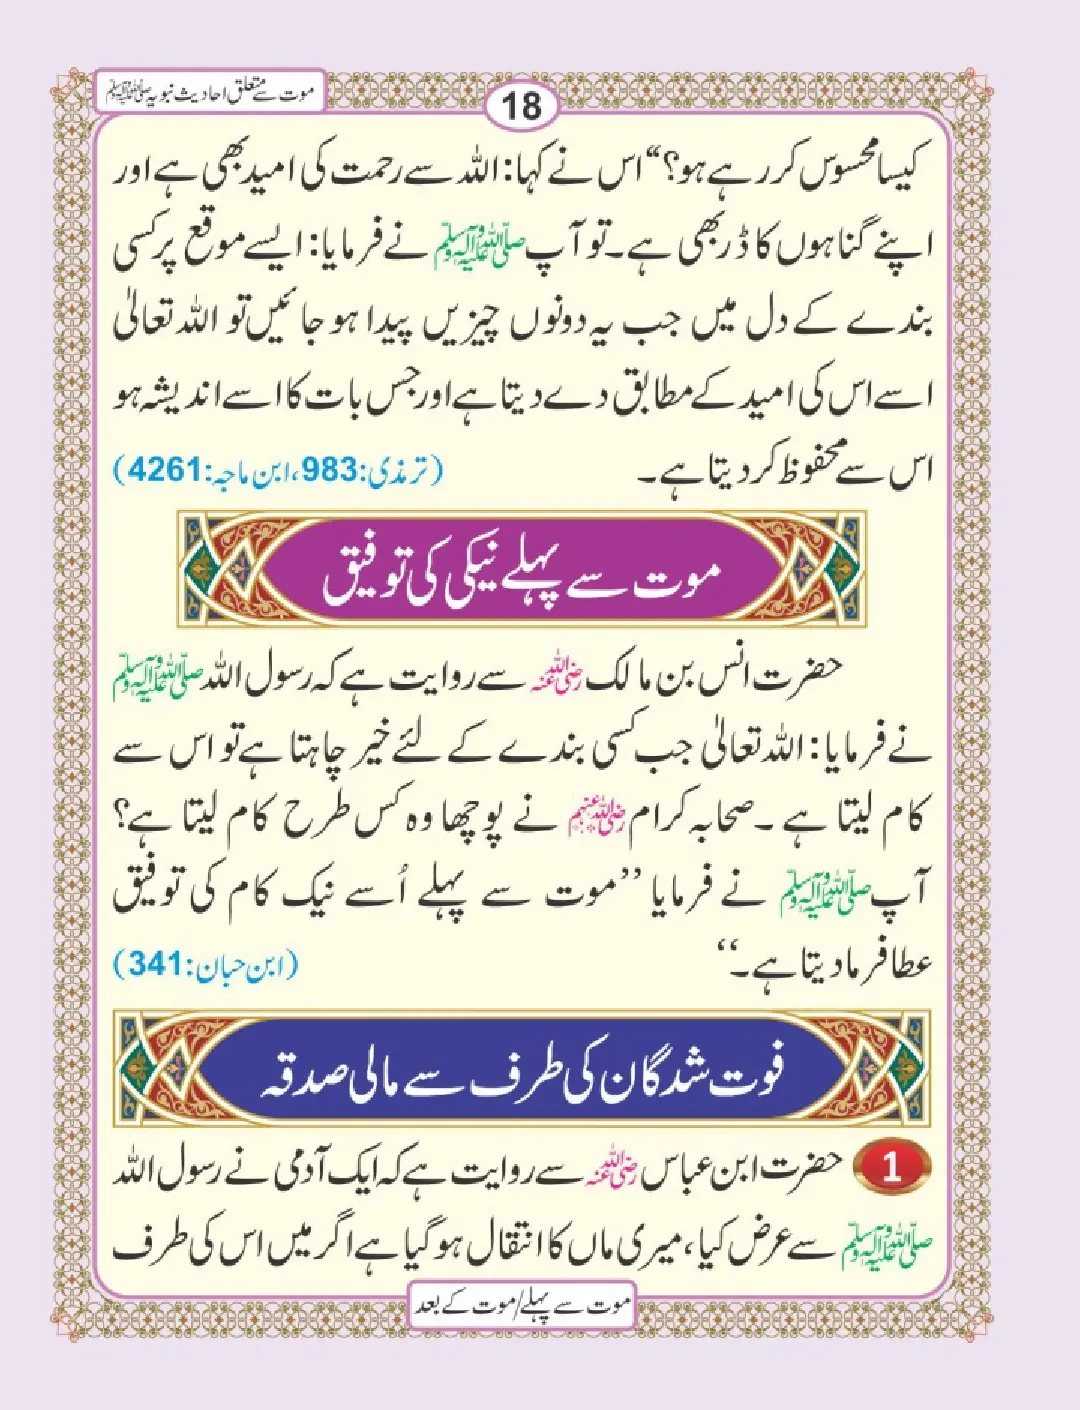 موت سے متعلق احادیث نبویہ ﷺ
18
کیسا محسوس کر رہے ہو؟“ اس نے کہا: اللہ سے رحمت کی امید بھی ہے اور
اپنے گناہوں کا ڈر بھی ہے۔ تو آپ ﷺ نے فرمایا: ایسے موقع پر کسی
بندے کے دل میں جب یہ دونوں چیزیں پیدا ہو جائیں تو اللہ تعالیٰ
اسے اس کی امید کے مطابق دے دیتا ہے اور جس بات کا اسے اندیشہ ہو
اس سے محفوظ کر دیتا ہے۔ (ترمذی:983، ابن ماجہ:4261)
موت سے پہلے نیکی کی توفیق
حضرت انس بن مالک رضی اللہ عنہ سے روایت ہے کہ رسول اللہ ﷺ
نے فرمایا: اللہ تعالیٰ جب کسی بندے کے لئے خیر چاہتا ہے تو اس سے
کام لیتا ہے۔ صحابہ کرام رضی اللہ عنہم نے پوچھا وہ کس طرح کام لیتا ہے؟
آپ ﷺ نے فرمایا ’’موت سے پہلے اُسے نیک کام کی توفیق
عطا فرما دیتا ہے۔‘‘ (ابن حبان:341)
فوت شدگان کی طرف سے مالی صدقہ
1 حضرت ابن عباس رضی اللہ عنہ سے روایت ہے کہ ایک آدمی نے رسول اللہ
ﷺ سے عرض کیا، میری ماں کا انتقال ہو گیا ہے اگر میں اس کی طرف
موت سے پہلے/موت کے بعد